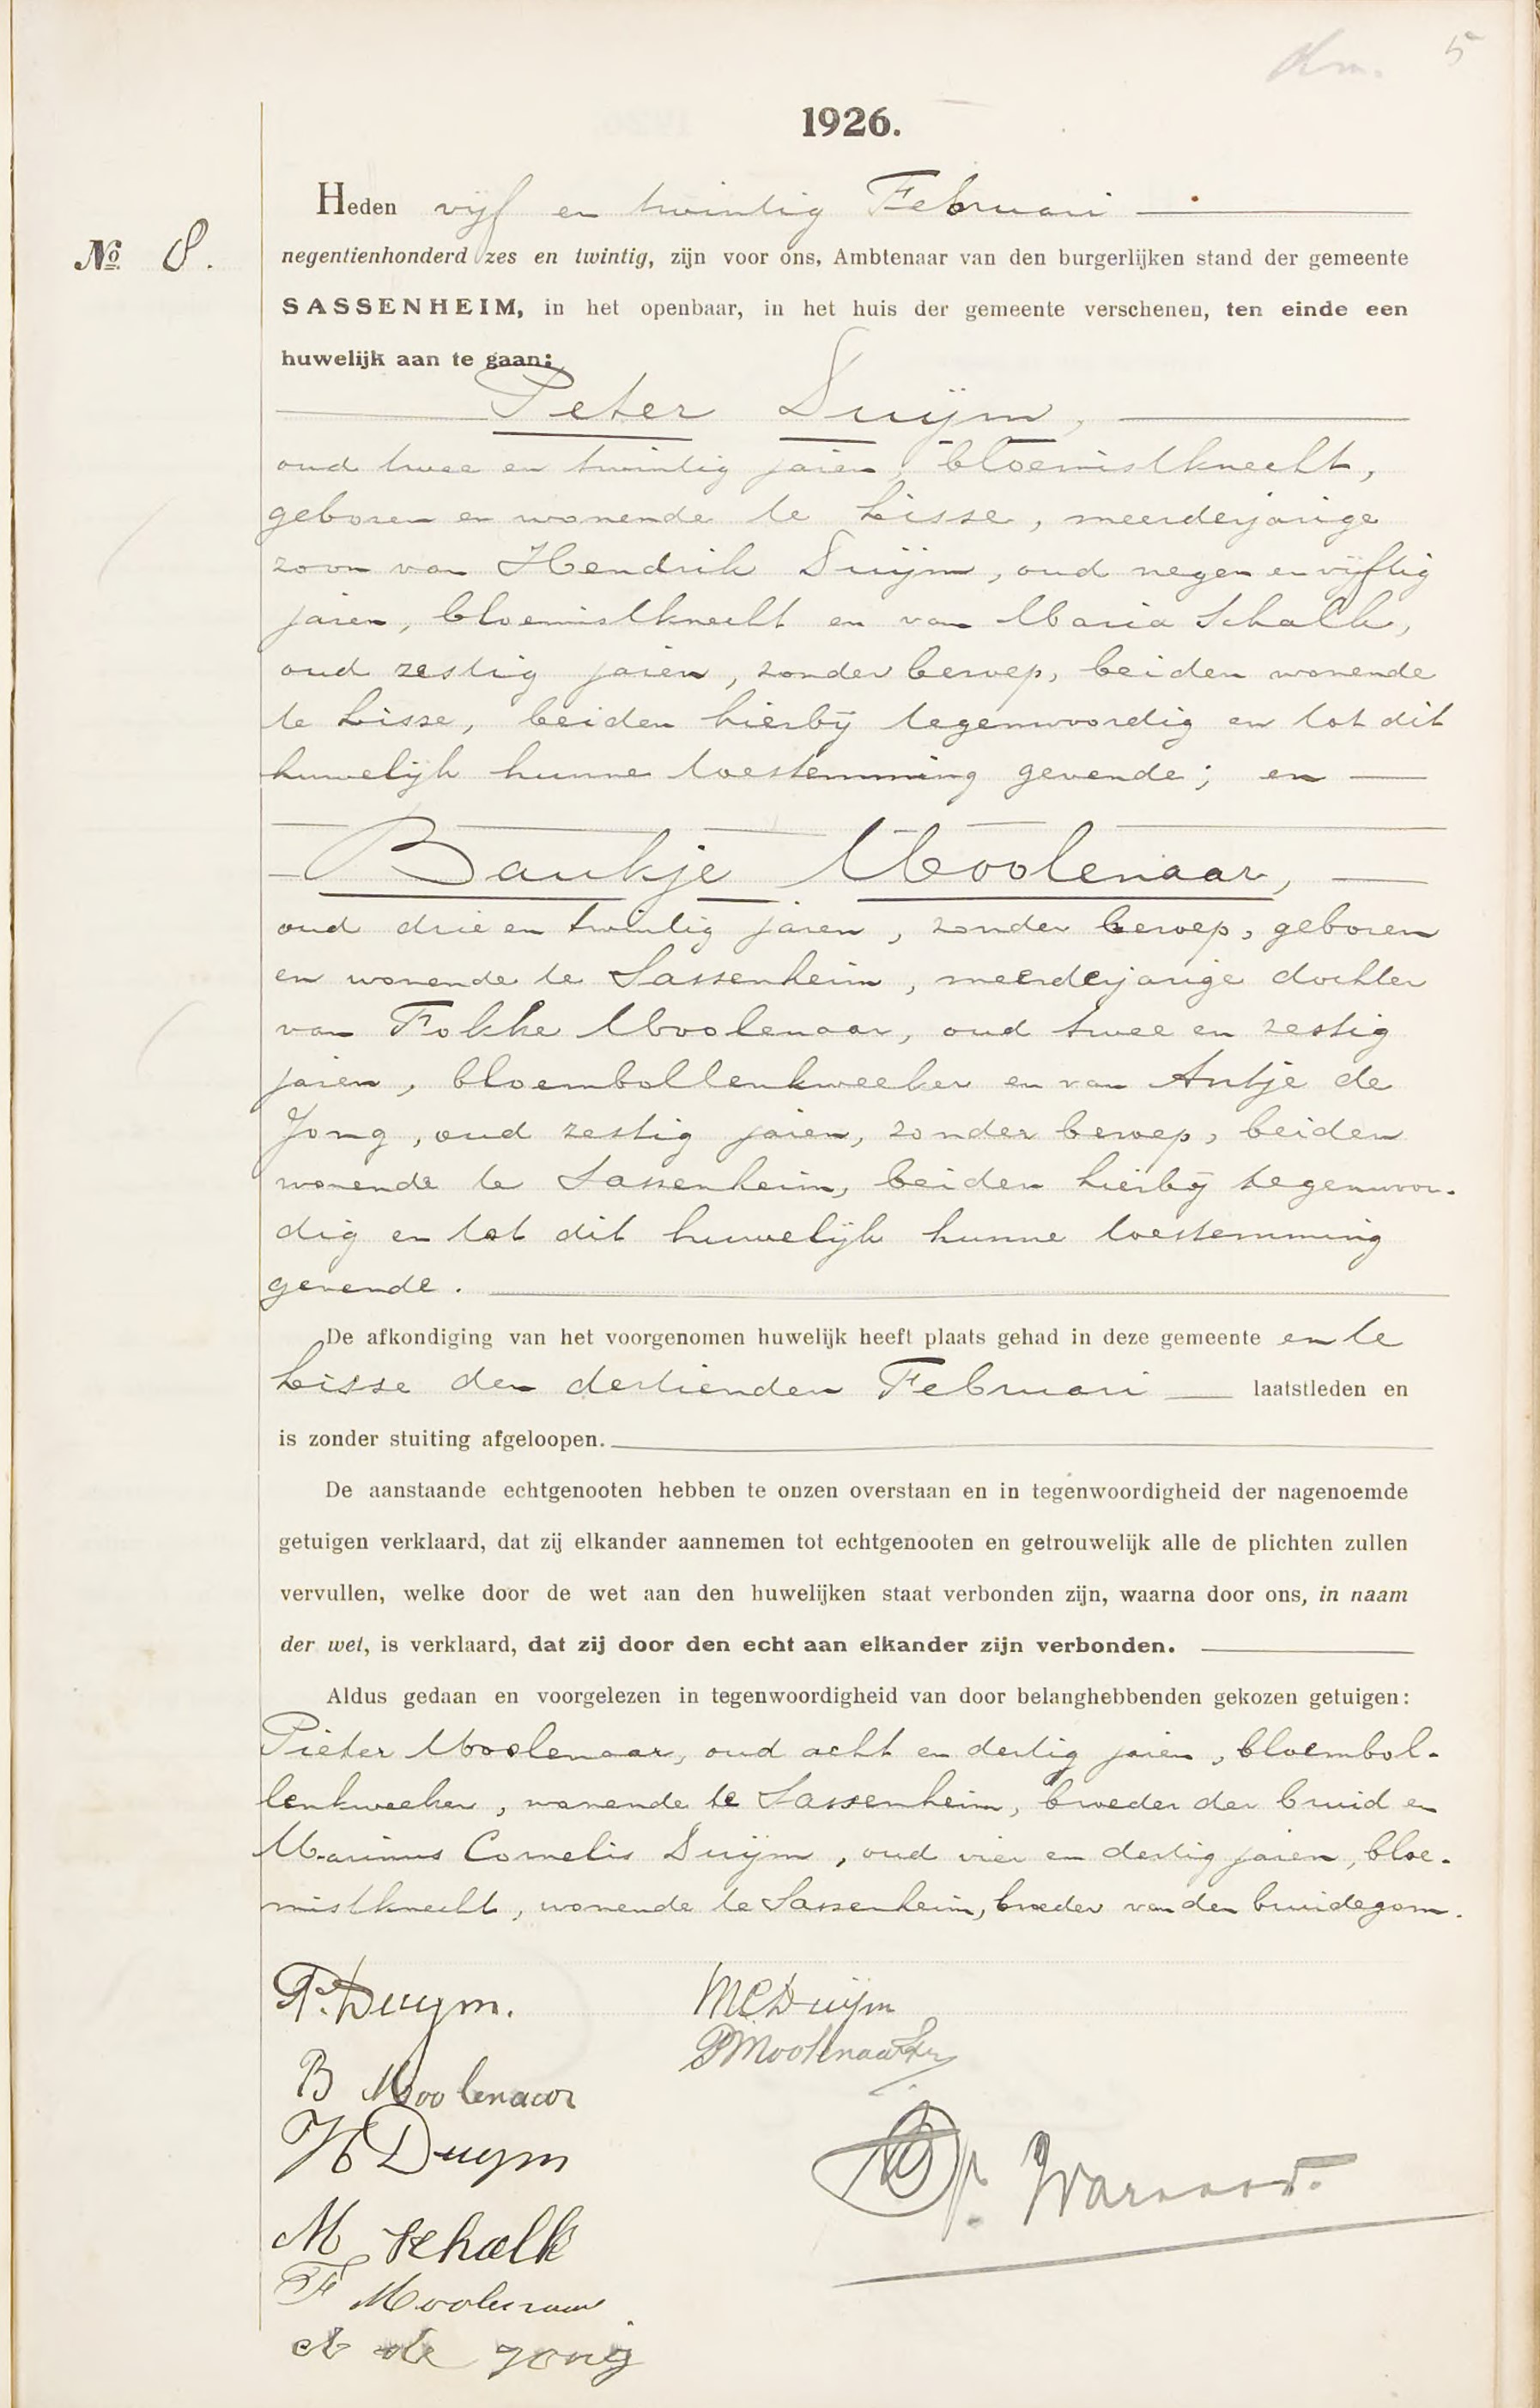 5
1926.
Heden vijf en twintig Februari
No 8.
negentienhonderd zes en twintig, zijn voor ons, Ambtenaar van den burgerlijken stand der gemeente
SASSENHEIM, in het openbaar, in het huis der gemeente verschenen, ten einde een
huwelijk aan te gaan:
Peter Duijm,
oud twee en twintig jaren, bloemistknecht,
geboren en wonende te Lisse, meerderjarige
zoon van Hendrik Duijm, oud negen en vijftig
jaren, bloemistknecht en van Maria Schalk,
oud zestig jaren, zonder beroep, beiden wonende
te Lisse, beiden hierbij tegenwoordig en tot dit
huwelijk hunne toestemming gevende; en
Baukje Moolenaar,
oud drie en twintig jaren, zonder beroep, geboren
en wonende te Sassenheim, meerderjarige dochter
van Fokke Moolenaar, oud twee en zestig
jaren, bloembollenkweeker en van Antje de
Jong, oud zestig jaren, zonder beroep, beiden
wonende te Sassenheim, beiden hierbij tegenwoor-
dig en tot dit huwelijk hunne toestemming
gevende.
De afkondiging van het voorgenomen huwelijk heeft plaats gehad in deze gemeente en te
Lisse den dertienden Februari laatstleden en
is zonder stuiting afgeloopen.
De aanstaande echtgenooten hebben te onzen overstaan en in tegenwoordigheid der nagenoemde
getuigen verklaard, dat zij elkander aannemen tot echtgenooten en getrouwelijk alle de plichten zullen
vervullen, welke door de wet aan den huwelijken staat verbonden zijn, waarna door ons, in naam
der wet, is verklaard, dat zij door den echt aan elkander zijn verbonden.
Aldus gedaan en voorgelezen in tegenwoordigheid van door belanghebbenden gekozen getuigen:
Pieter Moolenaar, oud acht en dertig jaren, bloembol-
lenkweeker, wonende te Sassenheim, broeder der bruid en
Marinus Cornelis Duijm, oud vier en dertig jaren, bloe-
mistknecht, wonende te Sassenheim, broeder van den bruidegom.
P. Duym.
MC Duijm
P Moolenaar Fzn
B Moolenaar
H Duym
M Schalk
F Moolenaar
A de Jong